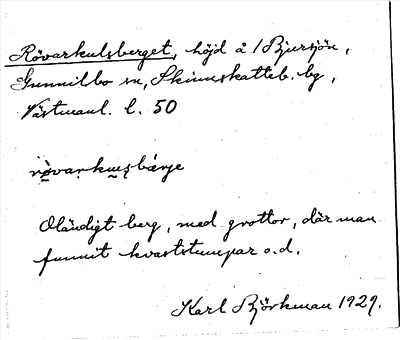 Rövarkulsberget, höjd å /Bjursjön,
Gunnilbo sn, Skinnskatteb. bg,
Västmanl. l. 50
rövarku̯sbärje
Oländigt berg, med grottor, där man
funnit kvaststumpar o.d.
Karl Björkman 1929.